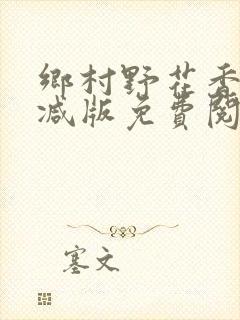 鄉村野花香
减版免費閱
塞文